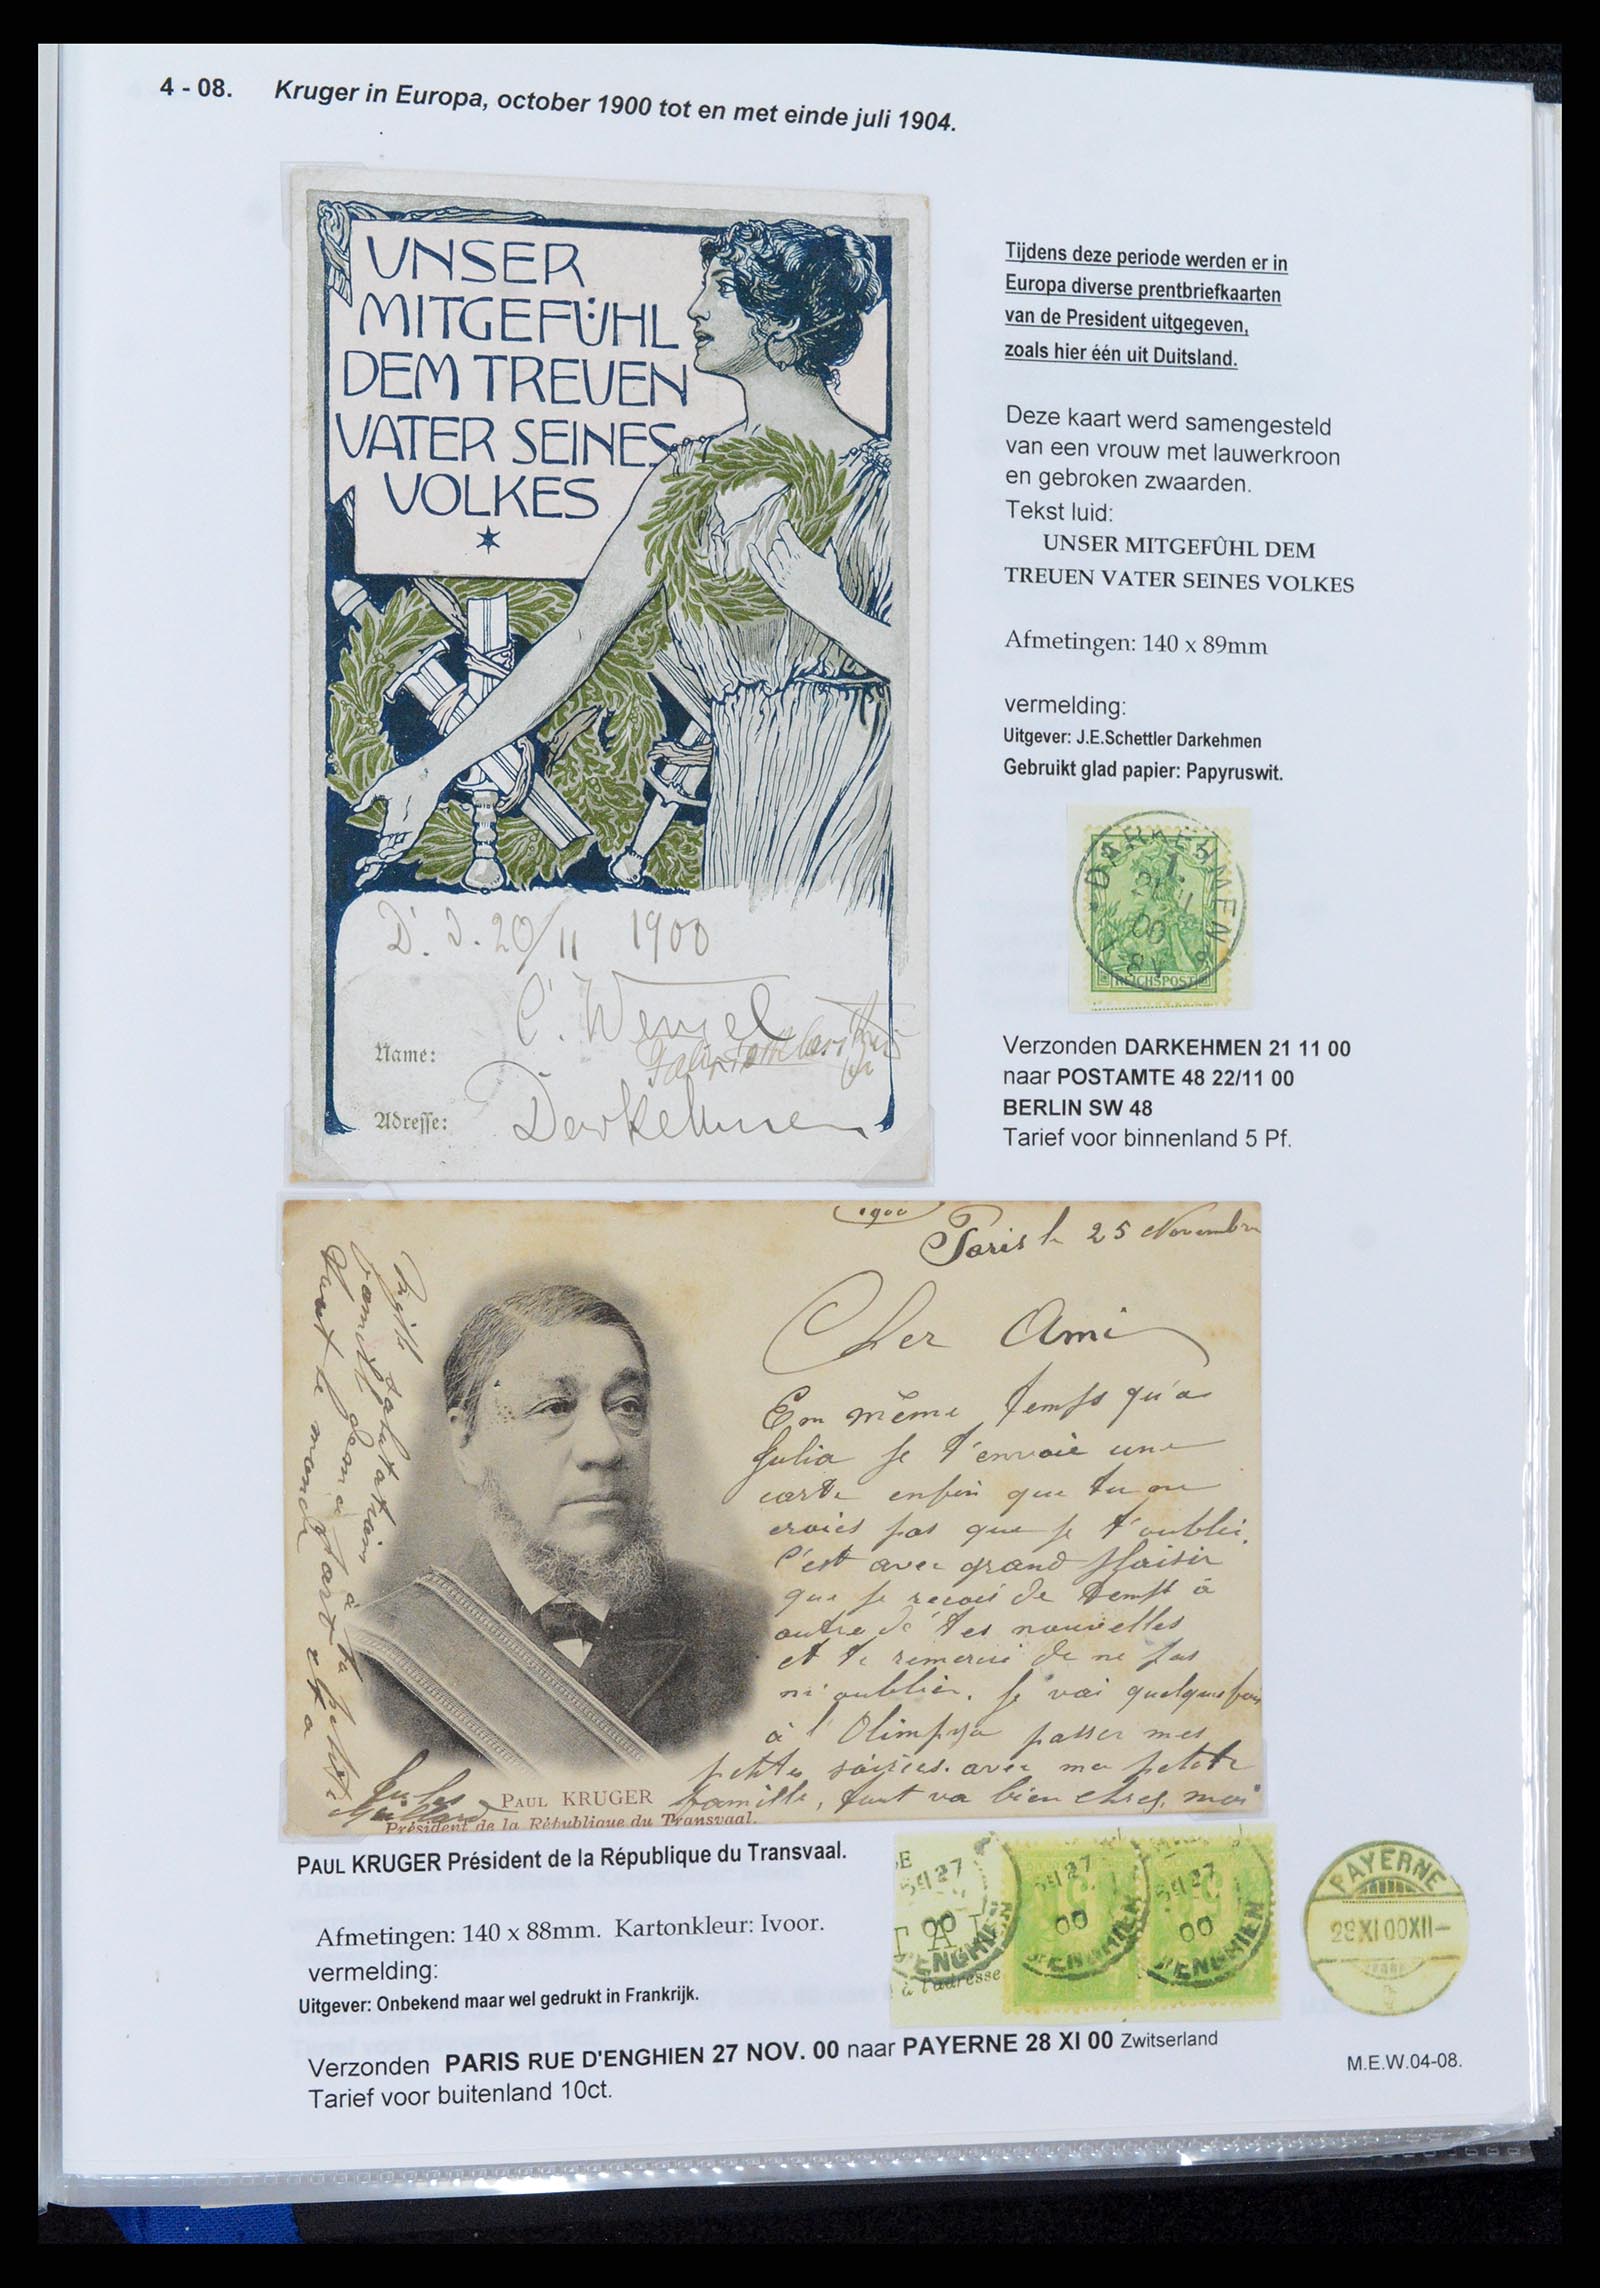 4 - 08. Kruger in Europa, october 1900 tot en met einde juli 1904.
UNSER
MITGEFÜHL
DEM TREUEN
VATER SEINES
VOLKES
D. 20/11 1900
C. Wenzel
Name:
Adresse:
Darkehmen
Tijdens deze periode werden er in
Europa diverse prentbriefkaarten
van de President uitgegeven,
zoals hier één uit Duitsland.
Deze kaart werd samengesteld
van een vrouw met lauwerkroon
en gebroken zwaarden.
Tekst luid:
UNSER MITGEFÛHL DEM
TREUEN VATER SEINES VOLKES
Afmetingen: 140 x 89mm
vermelding:
Uitgever: J.E.Schettler Darkehmen
Gebruikt glad papier: Papyruswit.
DARKEHMEN
5
00
REICHSPOST
Verzonden DARKEHMEN 21 11 00
naar POSTAMTE 48 22/11 00
BERLIN SW 48
Tarief voor binnenland 5 Pf.
1900
Paris le 25 Novembre
Cher Ami
En même temps qu'a
Julia je t'envoie une
carte enfin que tu ne
croies pas que je t'oublie.
C'est avec grand plaisir
que je recois de temps à
autre de tes nouvelles
et te remercie de ne pas
m'oublier. Je vai quelque fois
à l'Olimpya passer mes
petites soirées avec ma petite
famille, tout va bien chez moi
Jules
PAUL KRUGER
Président de la République du Transvaal.
PAUL KRUGER Président de la République du Transvaal.
Afmetingen: 140 x 88mm. Kartonkleur: Ivoor.
vermelding:
Uitgever: Onbekend maar wel gedrukt in Frankrijk.
27
00
ENGHIEN
à l'adresse
27
00
ENGHIEN
27
00
ENGHIEN
PAYERNE
28 XI 00 XII-
Verzonden PARIS RUE D'ENGHIEN 27 NOV. 00 naar PAYERNE 28 XI 00 Zwitserland
Tarief voor buitenland 10ct.
M.E.W.04-08.